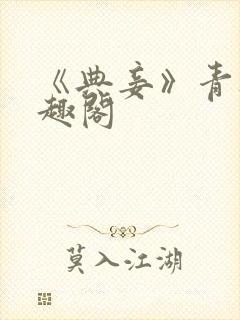 《典妾》青
趣阁
莫入江湖